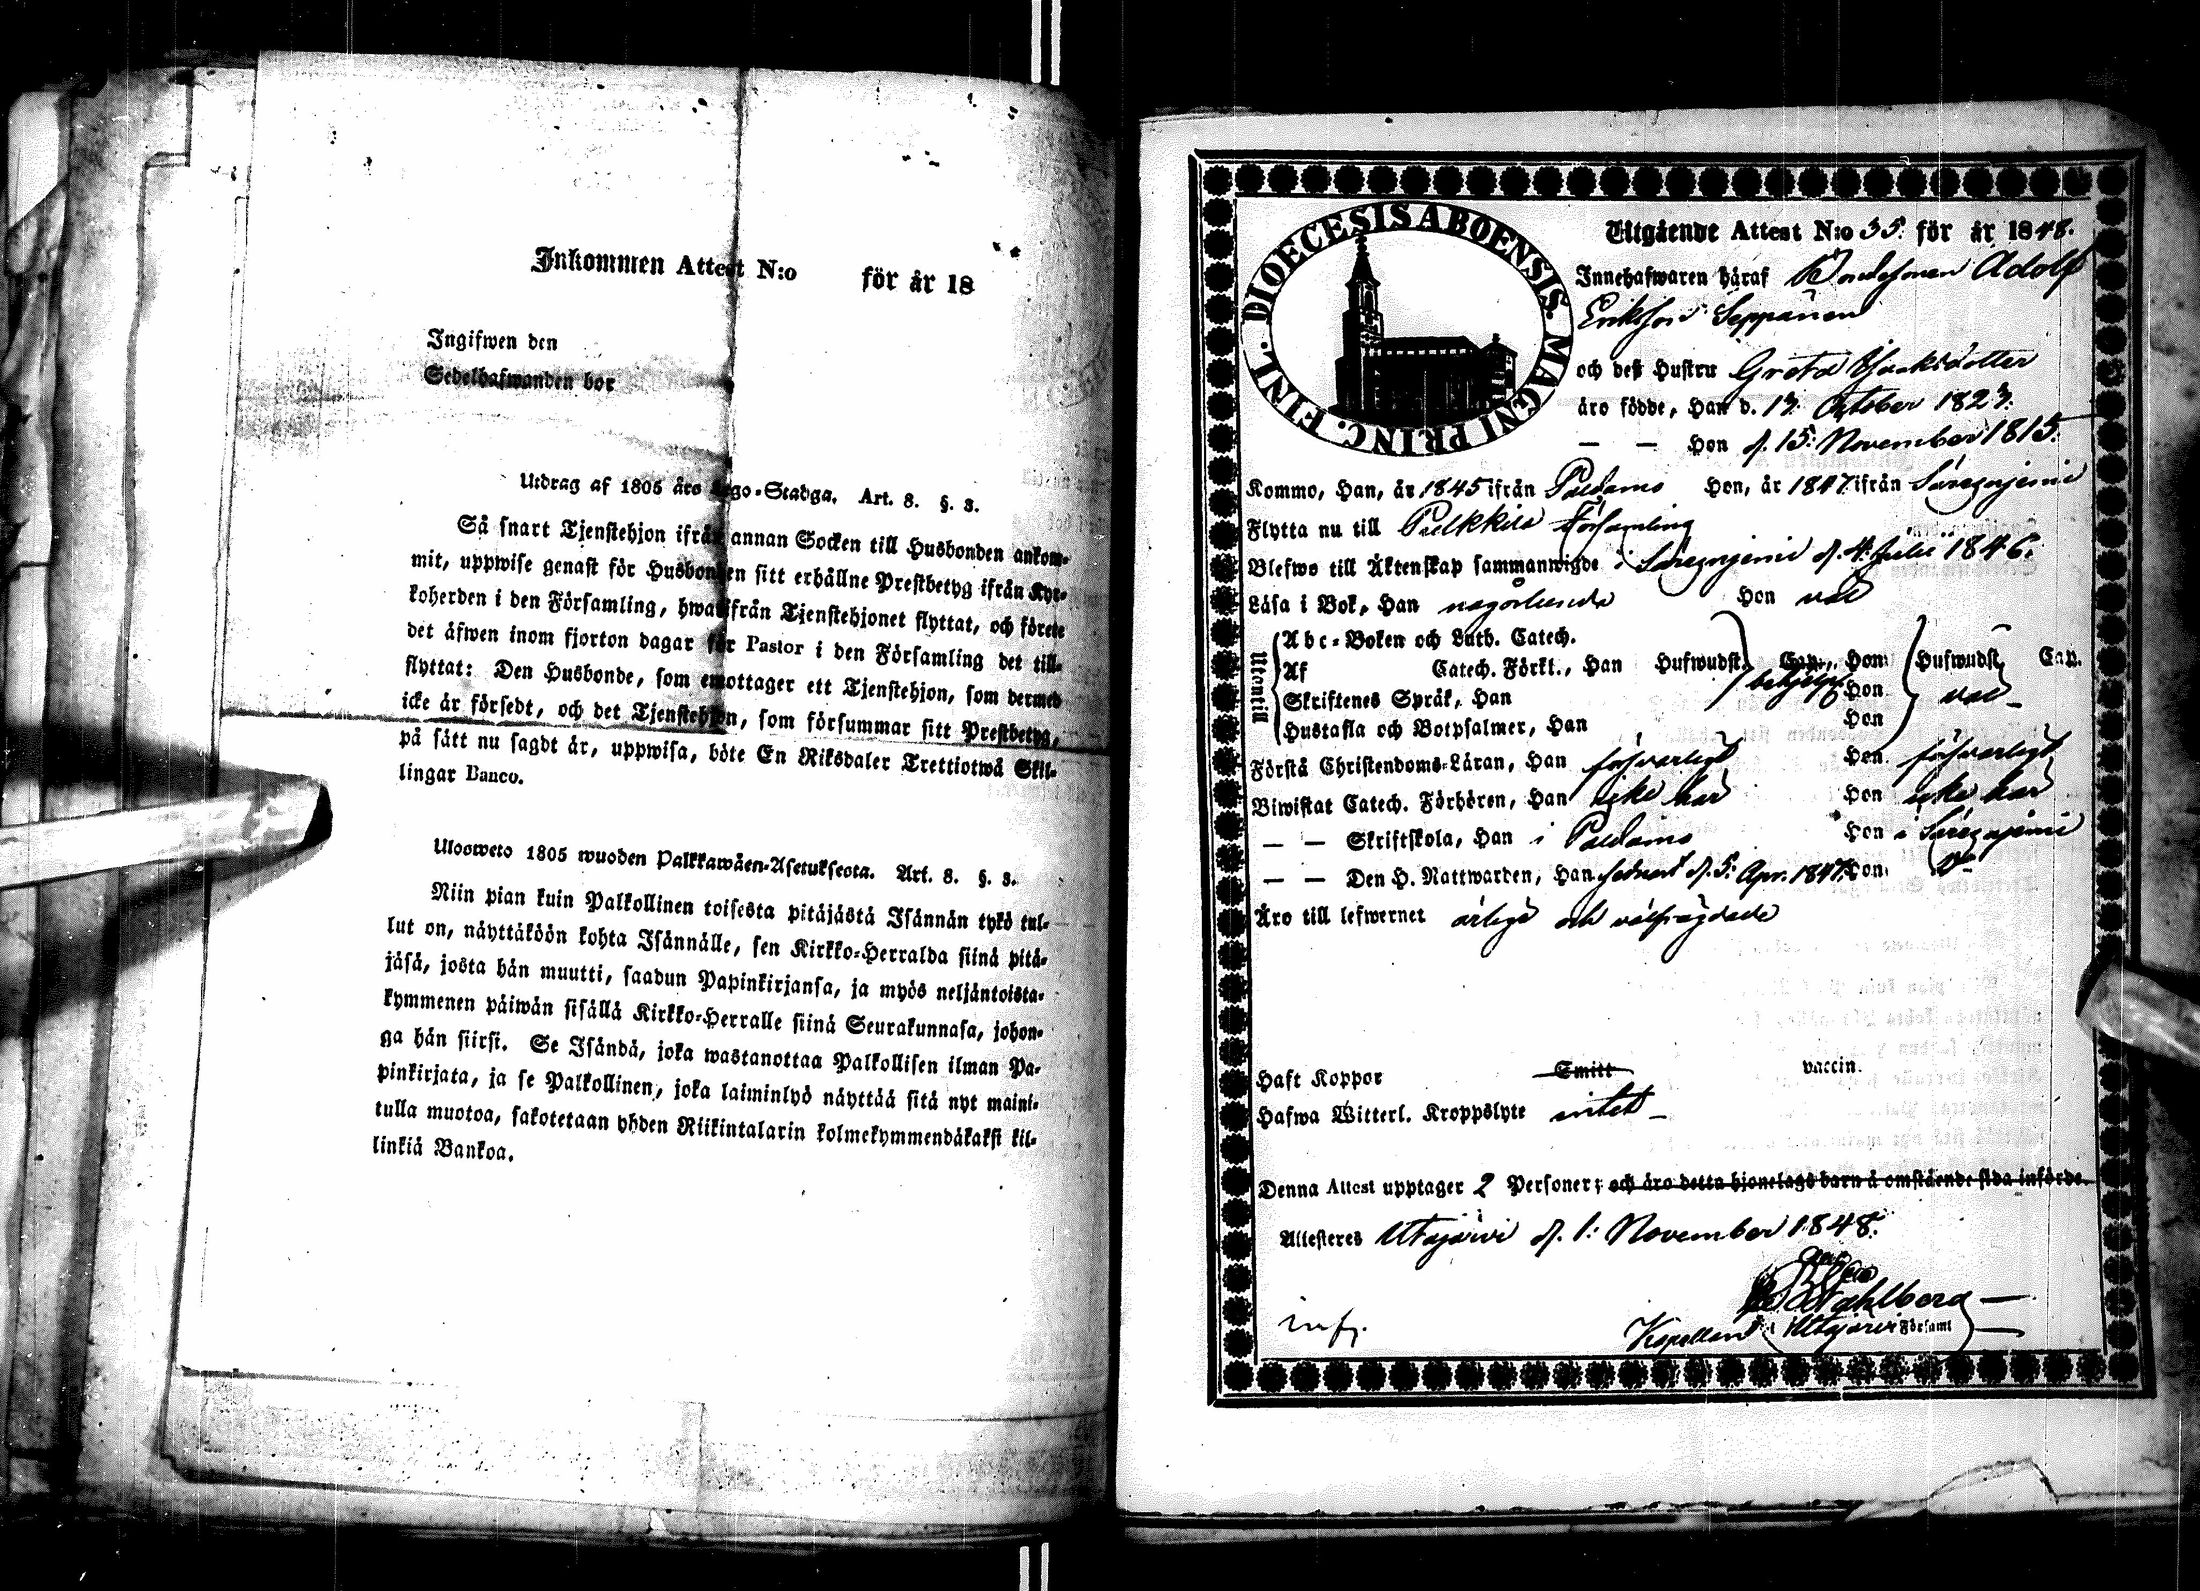 Inkommen Attest N:o för år 18
Ingifwen den
Sedelhafwanden bor
Utdrag af 1805 års Lego-Stadga. Art. 8. §. 3.
Så snart Tjenstehjon ifrån annan Socken till Husbonden ankom-
mit, uppwise genast för Husbonden sitt erhållne Prestbetyg ifrån Kyr-
koherden i den Församling, hwarifrån Tjenstehjonet flyttat, och förete
det äfwen inom fjorton dagar för Pastor i den Församling det till-
flyttat: Den Husbonde, som emottager ett Tjenstehjon, som dermed
icke är försedt, och det Tjenstehjon, som försummar sitt Prestbetyg,
på sätt nu sagdt är, uppwisa, böte En Riksdaler Trettiotwå Skil-
lingar Banco.
Ulosweto 1805 wuoden Palkkawäen-Asetuksesta. Art. 8. §. 3.
Niin pian kuin Palkollinen toisesta pitäjästä Isännän tykö tul-
lut on, näyttäköön kohta Isännälle, sen Kirkko-Herralda siinä pitä-
jäsä, josta hän muutti, saadun Papinkirjansa, ja myös neljäntoista-
kymmenen päiwän sisällä Kirkko-Herralle siinä Seurakunnasa, johon-
ga hän siirsi. Se Isändä, joka wastanottaa Palkollisen ilman Pa-
pinkirjata, ja se Palkollinen, joka laiminlyö näyttää sitä nyt maini-
tulla muotoa, sakotetaan yhden Riikintalarin kolmekymmendäkaksi kil-
linkiä Bankoa.
DIOECESIS ABOENSIS. MAGNI PRINC. FINL.
Utgående Attest N:o 35. för år 1848.
Innehafwaren häraf Bondesonen Adolf
Eriksson Seppänen
och dess Hustru Greta Isaksdotter
äro födde, Han d. 13 October 1823.
— — Hon d. 15 November 1815.
Kommo, Han, år 1845 ifrån Paldamo Hon, år 1847 ifrån Säresniemi
Flytta nu till Pulkkila Församling
Blefwo till Äktenskap sammanwigde i Säresniemi d. 4 Julii 1846.
Läsa i Bok, Han någorlunda Hon väl
Utontill
Abc-Boken och Luth. Catech.
Af Catech. Förkl., Han Hufwudst. Cap., Hon Hufwudst. Cap.
Skriftenes Språk, Han behjelpl. Hon väl
Hustafla och Botpsalmer, Han Hon
Förstå Christendoms-Läran, Han försvarligt Hon försvarligt
Biwistat Catech. Förhören, Han icke här Hon icke här
— — Skriftskola, Han i Paldamo Hon i Säresniemi
— — Den H. Nattwarden, Han sednast d. 5 Apr. 1847. Hon
Äro till lefwernet ärlige och välfrägdade
Haft Koppor Smitt vaccin.
Hafwa Witterl. Kroppslyte intet
Denna Attest upptager 2 Personer; och äro detta hjonelags barn å omstående sida införde.
Attesteres Utajärvi d. 1: November 1848.
Wahlberg
inf.
Kapellan i Utajärvi Församl